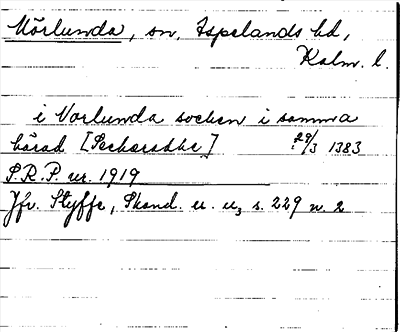 Mörlunda, sn, Aspelands hd,
Kalm. l.
i Morlunda socken i samma
härad [Sechæradhe] 29/3 1383
S.R.P. nr. 1919
Jfr. Styffe, Skand. u. u, s. 229 n. 2